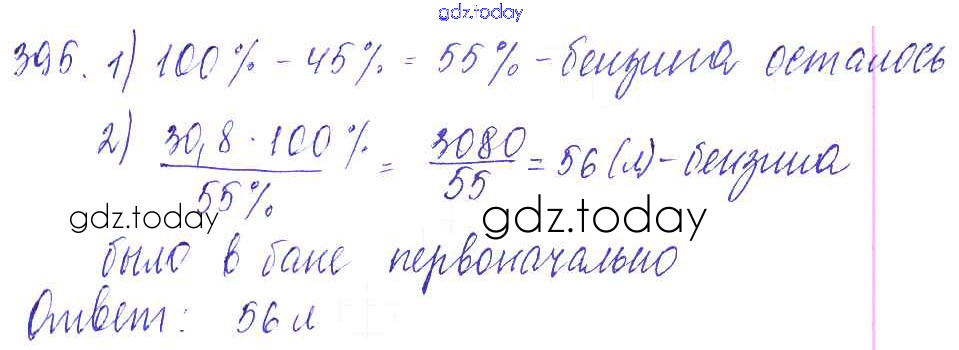 gdz.today
395. 1) 100% - 45% = 55% - бензина осталось
2) 30,8 · 100% / 55% = 3080 / 55 = 56 (л) - бензина
gdz.today gdz.today
было в баке первоначально
Ответ: 56 л